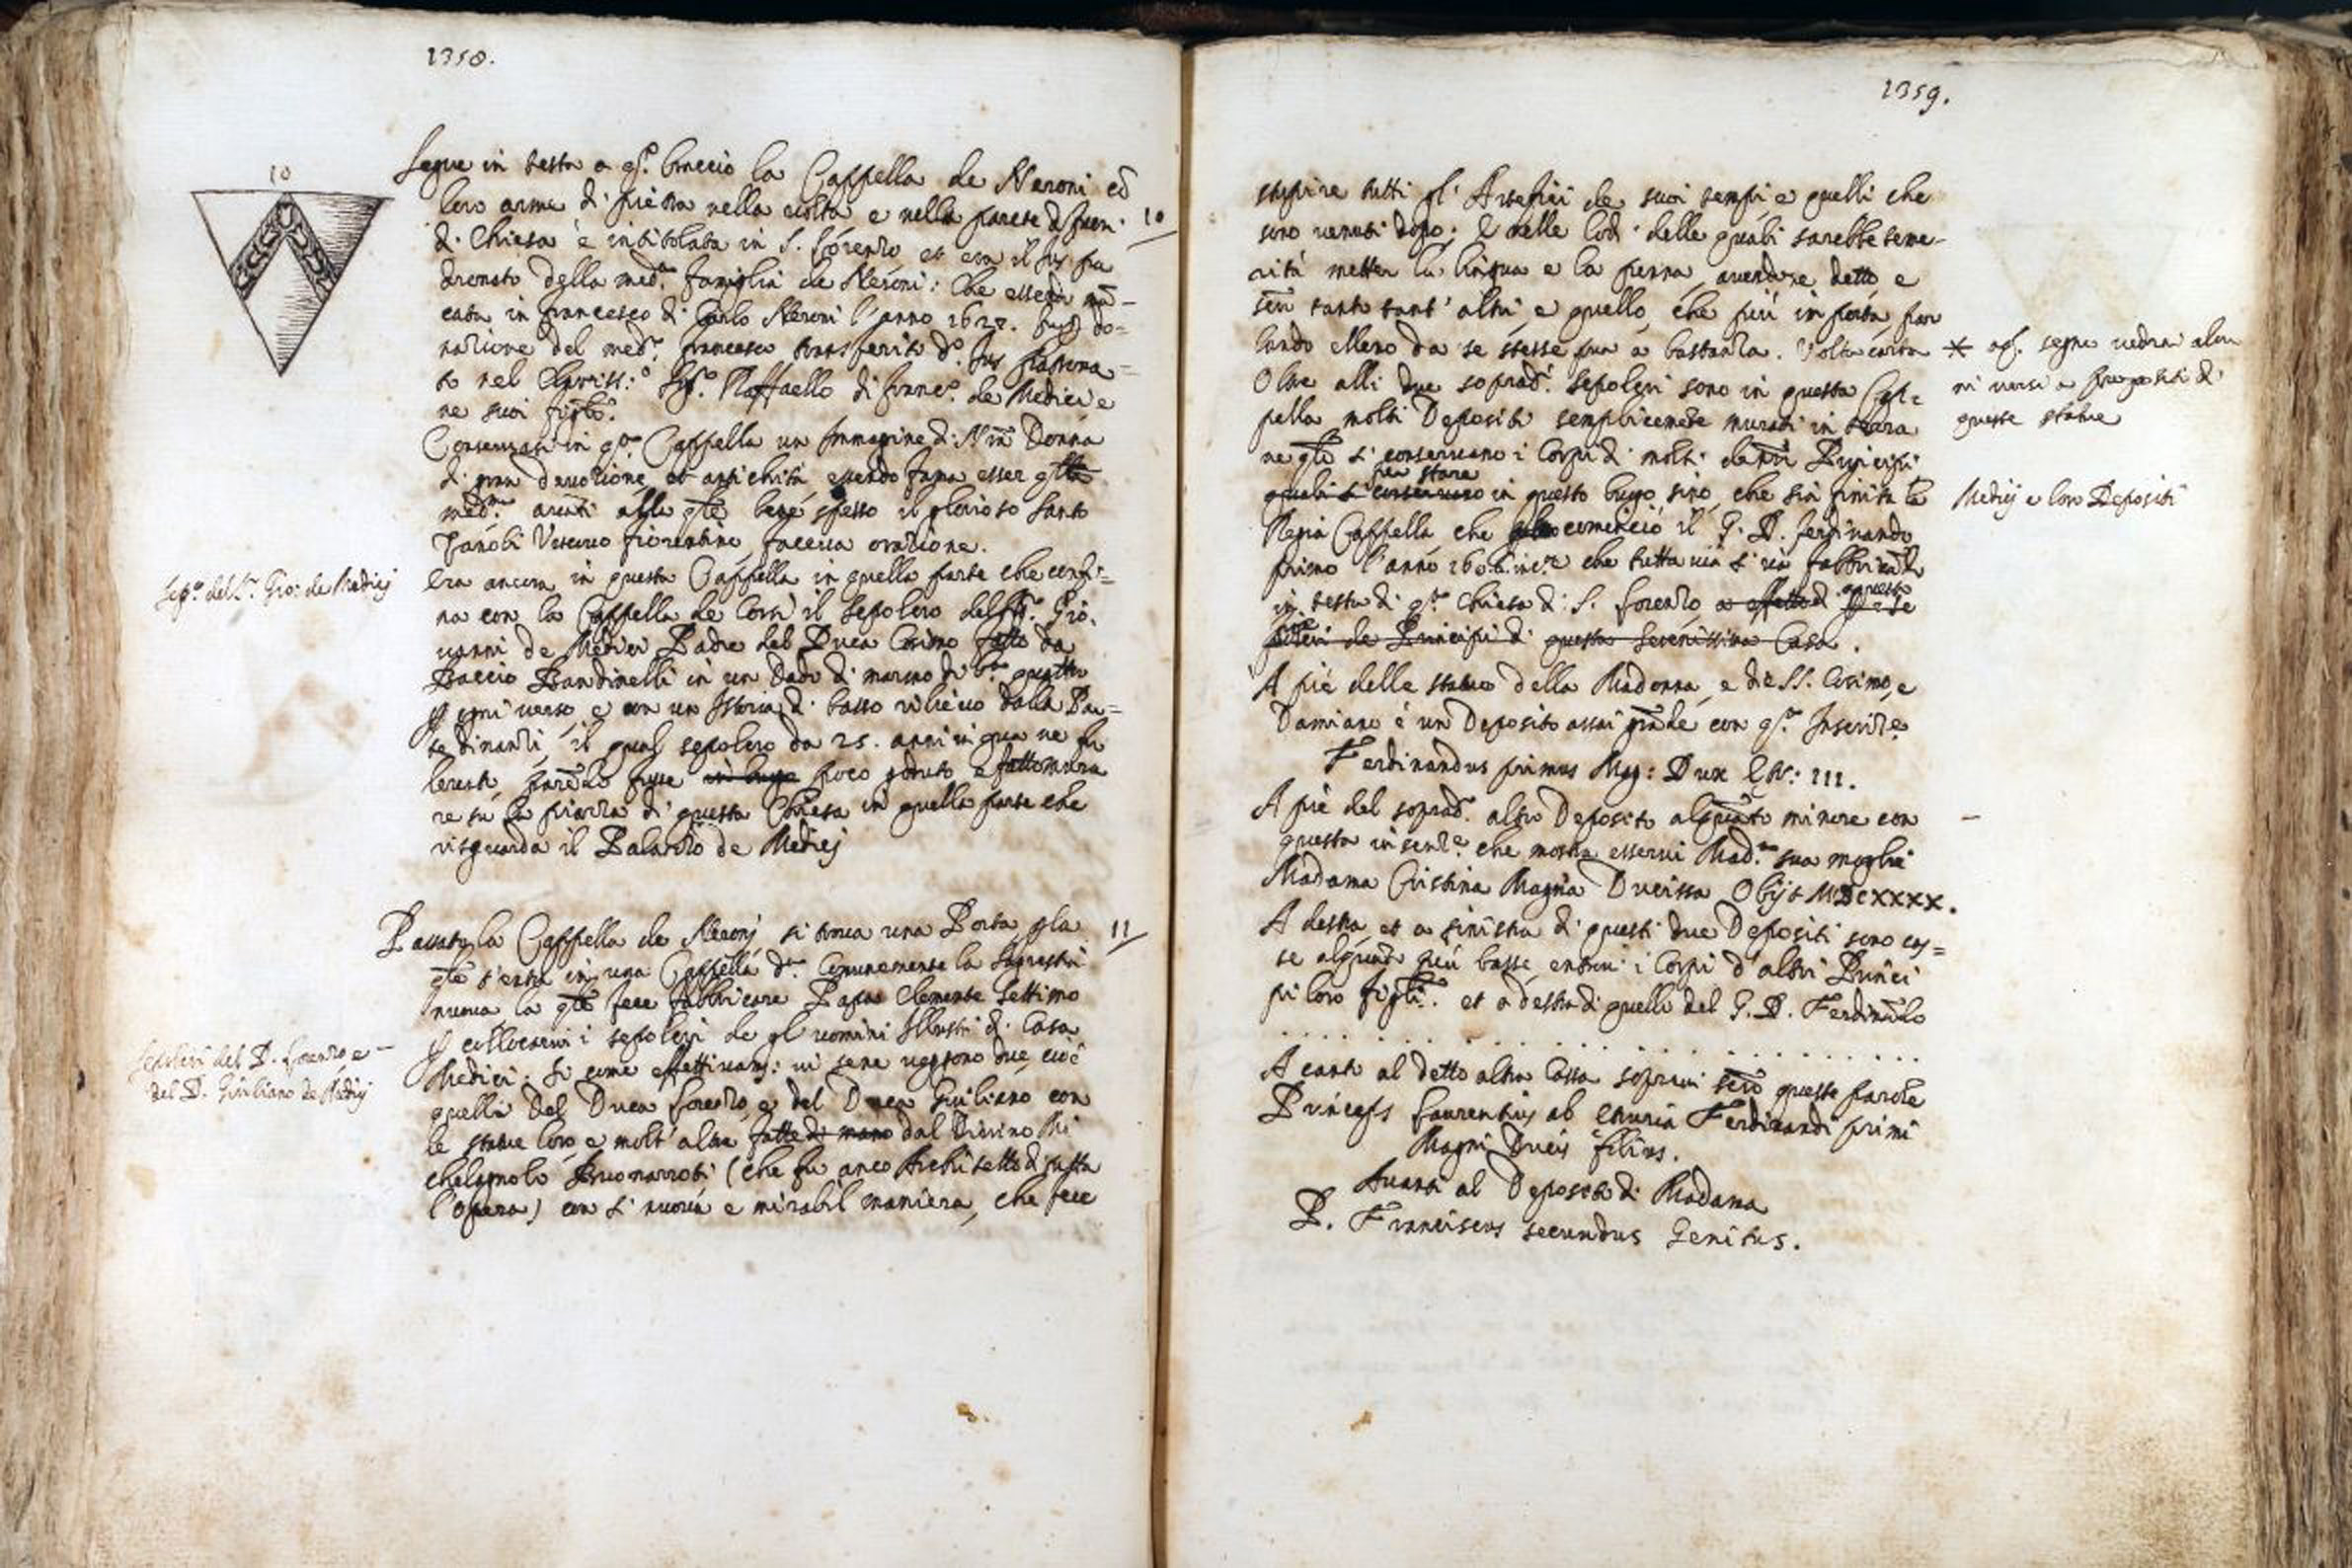 1358.
10
Segue in testa a q.sto braccio la Cappella de Neroni ed
loro arme di pietra nella volta e nella parete di fuori. 10
di Chiesa è intitolata in S. Lorenzo et era il Jus pa
dronato della med.a famiglia de Neroni: che essendo mã-
cata in francesco di Carlo Neroni l'anno 1627. do-
nazione del med.o francesco transferito d.o Jus padrona-
to nel Clariss:o Sig.r Raffaello di franc.o de Medici e
ne suoi figli.
Conservasi in q.sta Cappella un Immagine di N.ra Donna
di gran devozione, et antichità, essendo fama esser q.lla
med.ma avanti alla q.le bene spesso il glorioso Santo
Zanobi Vescovo fiorentino faceva orazione.
Sep.o del S.r Gio: de Medicj
Era ancora in questa Cappella in quella parte che confi=
na con la Cappella de Corsi il sepolcro del S.r Gio.
vanni de Medici Padre del Duca Cosimo fatto da
Baccio Bandinelli in un Dado di marmo di b.a quattro
p ogni verso e con un Istoria di basso rilievo dalla Par=
te dinanzi, il qual sepolcro da 25. anni in qua ne fu
levato, parẽdo fusse in luogo poco goduto e fatto mura
re su la piazza di questa Chiesa in quella parte che
risguarda il Palazzo de Medicj
Passato la Cappella de Neronj si trova una Porta p la 11
q.le s'entra in una Cappella d.a Comunemente la Sagrestia
nuova la q.le fece fabbricare Papa Clemente Settimo
p collocarvi i sepolcri de gl'uomini Illustri di Casa
Sepolcri del D. Lorenzo e –
del D. Giuliano de Medicj
Medici: Si come effettivam: vi sene veggono due, cioè
quelli del Duca Lorenzo, e del Duca Giuliano con
le statue loro e molt'altre fatte di mano dal Divino Mi
chelagnolo Buonarroti (che fu anco Architetto di tutta
l'opera) con sì nuova e mirabil maniera, che fece
1359.
stupire tutti gl'Artefici de suoi tempi e quelli che
sono venuti dopo; E nelle lodi delle quali sarebbe teme-
rità metter la lingua e la penna, avendone detto, e
tanti tant'altri e quello, che più importa, par
lando elleno da se stesse pur a bastanza. Volta carta
* a q.o segno vedrai alcu
ni versi a propositi di
queste statue
Oltre alli due soprad.i sepolcri sono in questa Cap=
pella molti Depositi semplicemente murati in
ne q.li si conservano i Corpi di molti Principi
per stare
quali si conservano in questo luogo, sino, che sia finita la
Medicj e loro Depositi
Regia Cappella che cominciò il G. D. Ferdinando
primo l'anno 1606. che tutta via si và fabbricãdo
in testa di q.sta Chiesa di S. Lorenzo a effetto di
polcri de Principi di questa Serenissima Casa.
A piè delle statue della Madonna, e di SS. Cosimo, e
Damiano è un Deposito assai grãde con q.sta Inscriz.e
Ferdinandus primus Mag: Dux Etr: III.
A piè del soprad.o altro Deposito alquãto minore con –
questa inscriz.e che mostra esservi Mad.ma sua moglie
Madama Cristina Magna Ducissa Obijt MDCXXXX.
A destra, et a sinistra di questi due Depositi sono cas=
se alquanto più basse, entrovi i Corpi d'altri Princi
pi loro figli. et a destra di quelli del G. D. Ferdinãdo
. . . . . . . . . . . . . . . .
A canto al detto altra Cassa sopravi sono queste parole
Princeps Laurentius ab Etruria Ferdinandi primi
Magni Ducis filius.
Avanti al Deposito di Madama
P. Franciscus secundus Genitus.